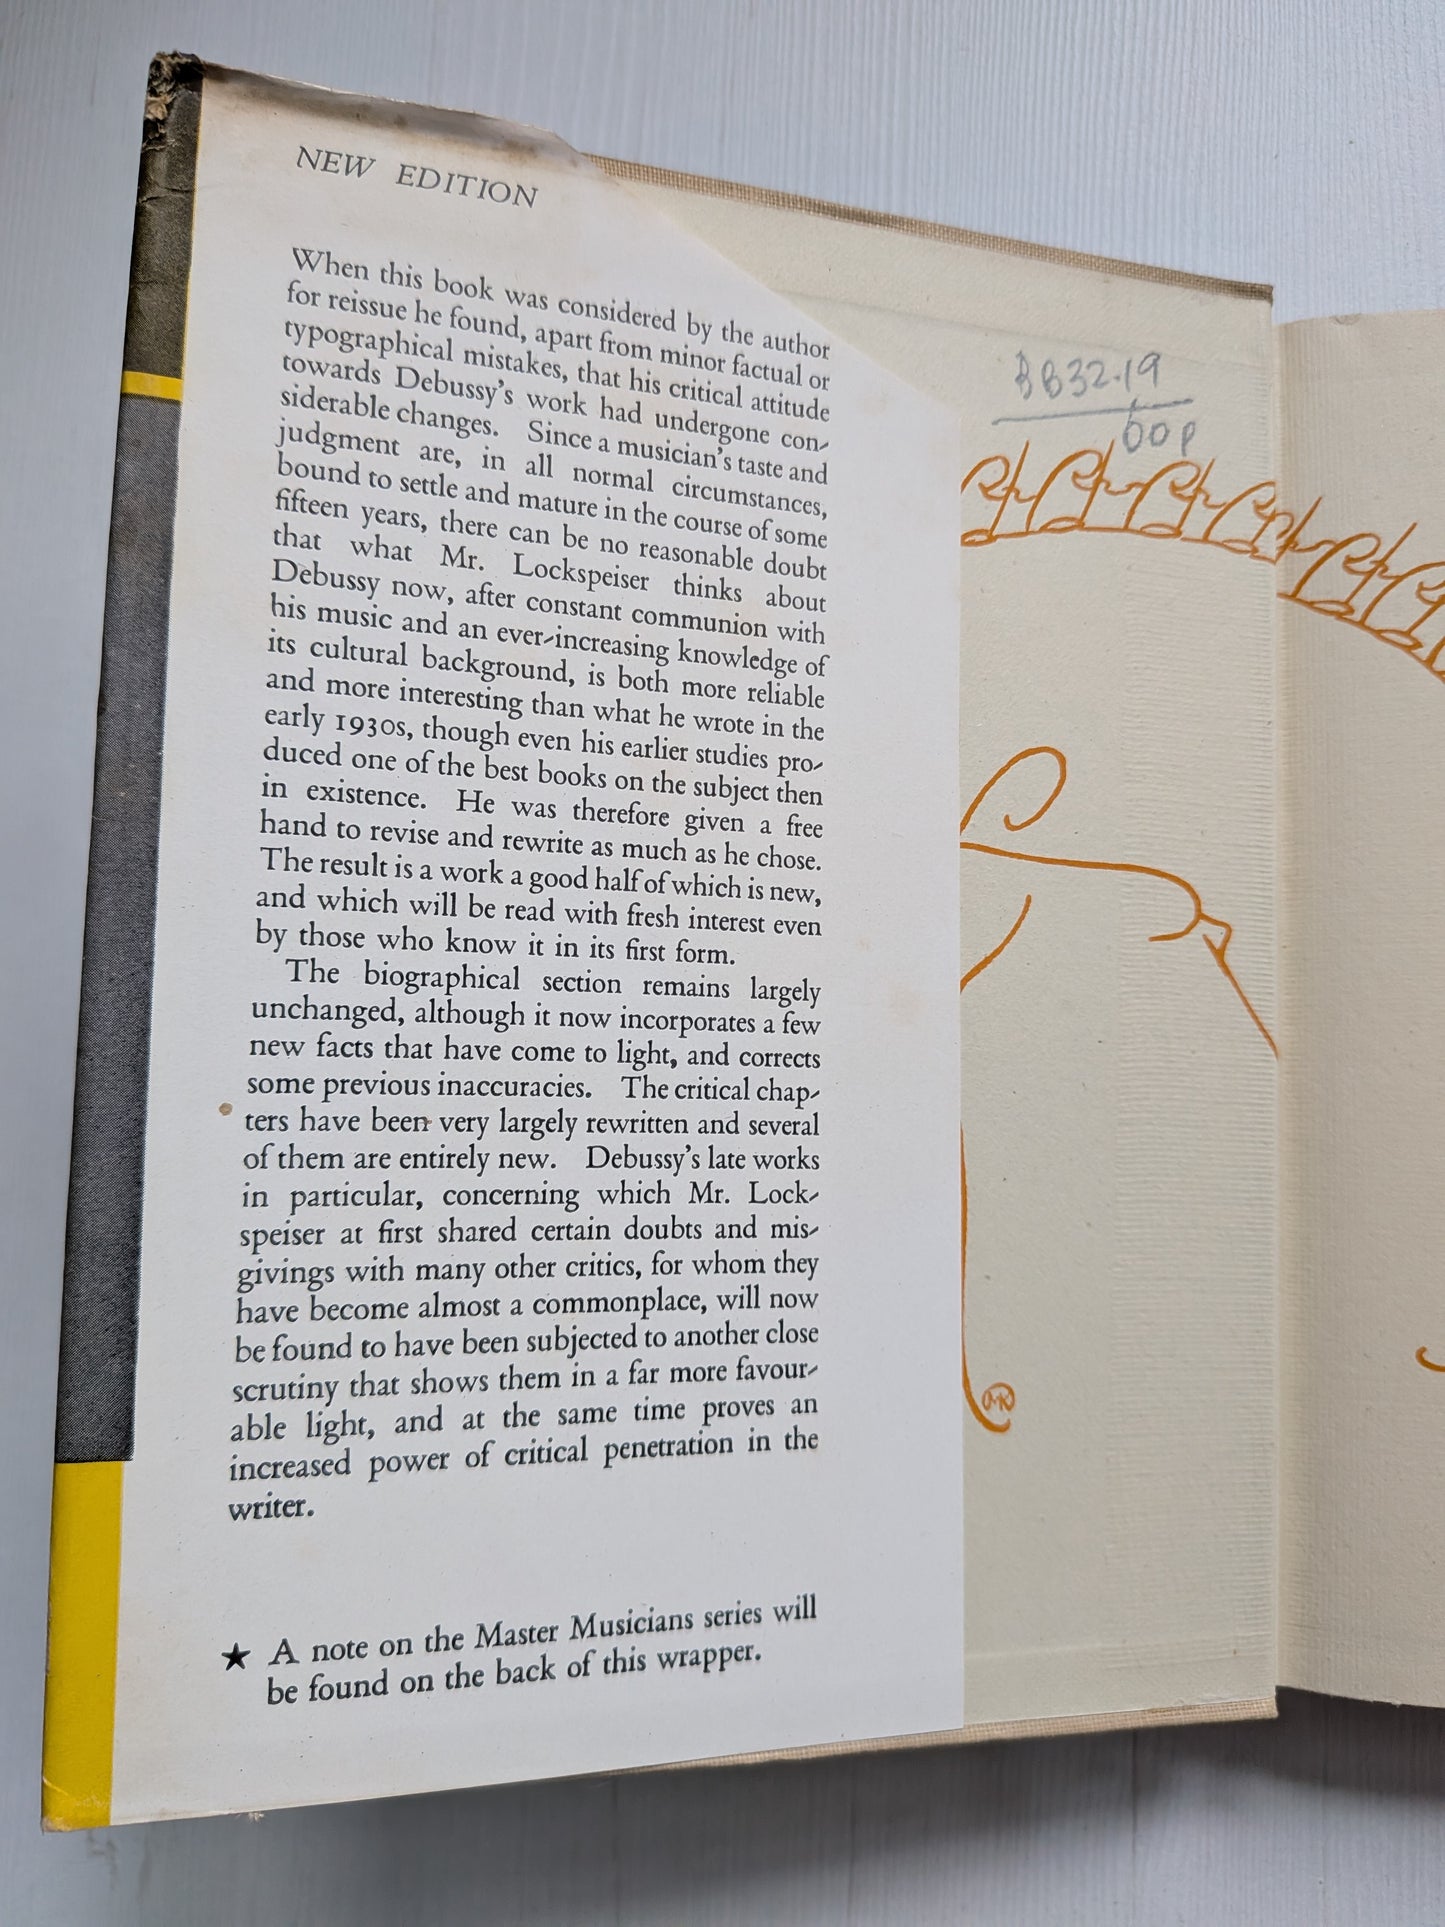 NEW EDITION
When this book was considered by the author
for reissue he found, apart from minor factual or
typographical mistakes, that his critical attitude
towards Debussy's work had undergone con-
siderable changes. Since a musician's taste and
judgment are, in all normal circumstances,
bound to settle and mature in the course of some
fifteen years, there can be no reasonable doubt
that what Mr. Lockspeiser thinks about
Debussy now, after constant communion with
his music and an ever-increasing knowledge of
its cultural background, is both more reliable
and more interesting than what he wrote in the
early 1930s, though even his earlier studies pro-
duced one of the best books on the subject then
in existence. He was therefore given a free
hand to revise and rewrite as much as he chose.
The result is a work a good half of which is new,
and which will be read with fresh interest even
by those who know it in its first form.
The biographical section remains largely
unchanged, although it now incorporates a few
new facts that have come to light, and corrects
some previous inaccuracies. The critical chap-
ters have been very largely rewritten and several
of them are entirely new. Debussy's late works
in particular, concerning which Mr. Lock-
speiser at first shared certain doubts and mis-
givings with many other critics, for whom they
have become almost a commonplace, will now
be found to have been subjected to another close
scrutiny that shows them in a far more favour-
able light, and at the same time proves an
increased power of critical penetration in the
writer.
★ A note on the Master Musicians series will
be found on the back of this wrapper.
BB32.19
60p